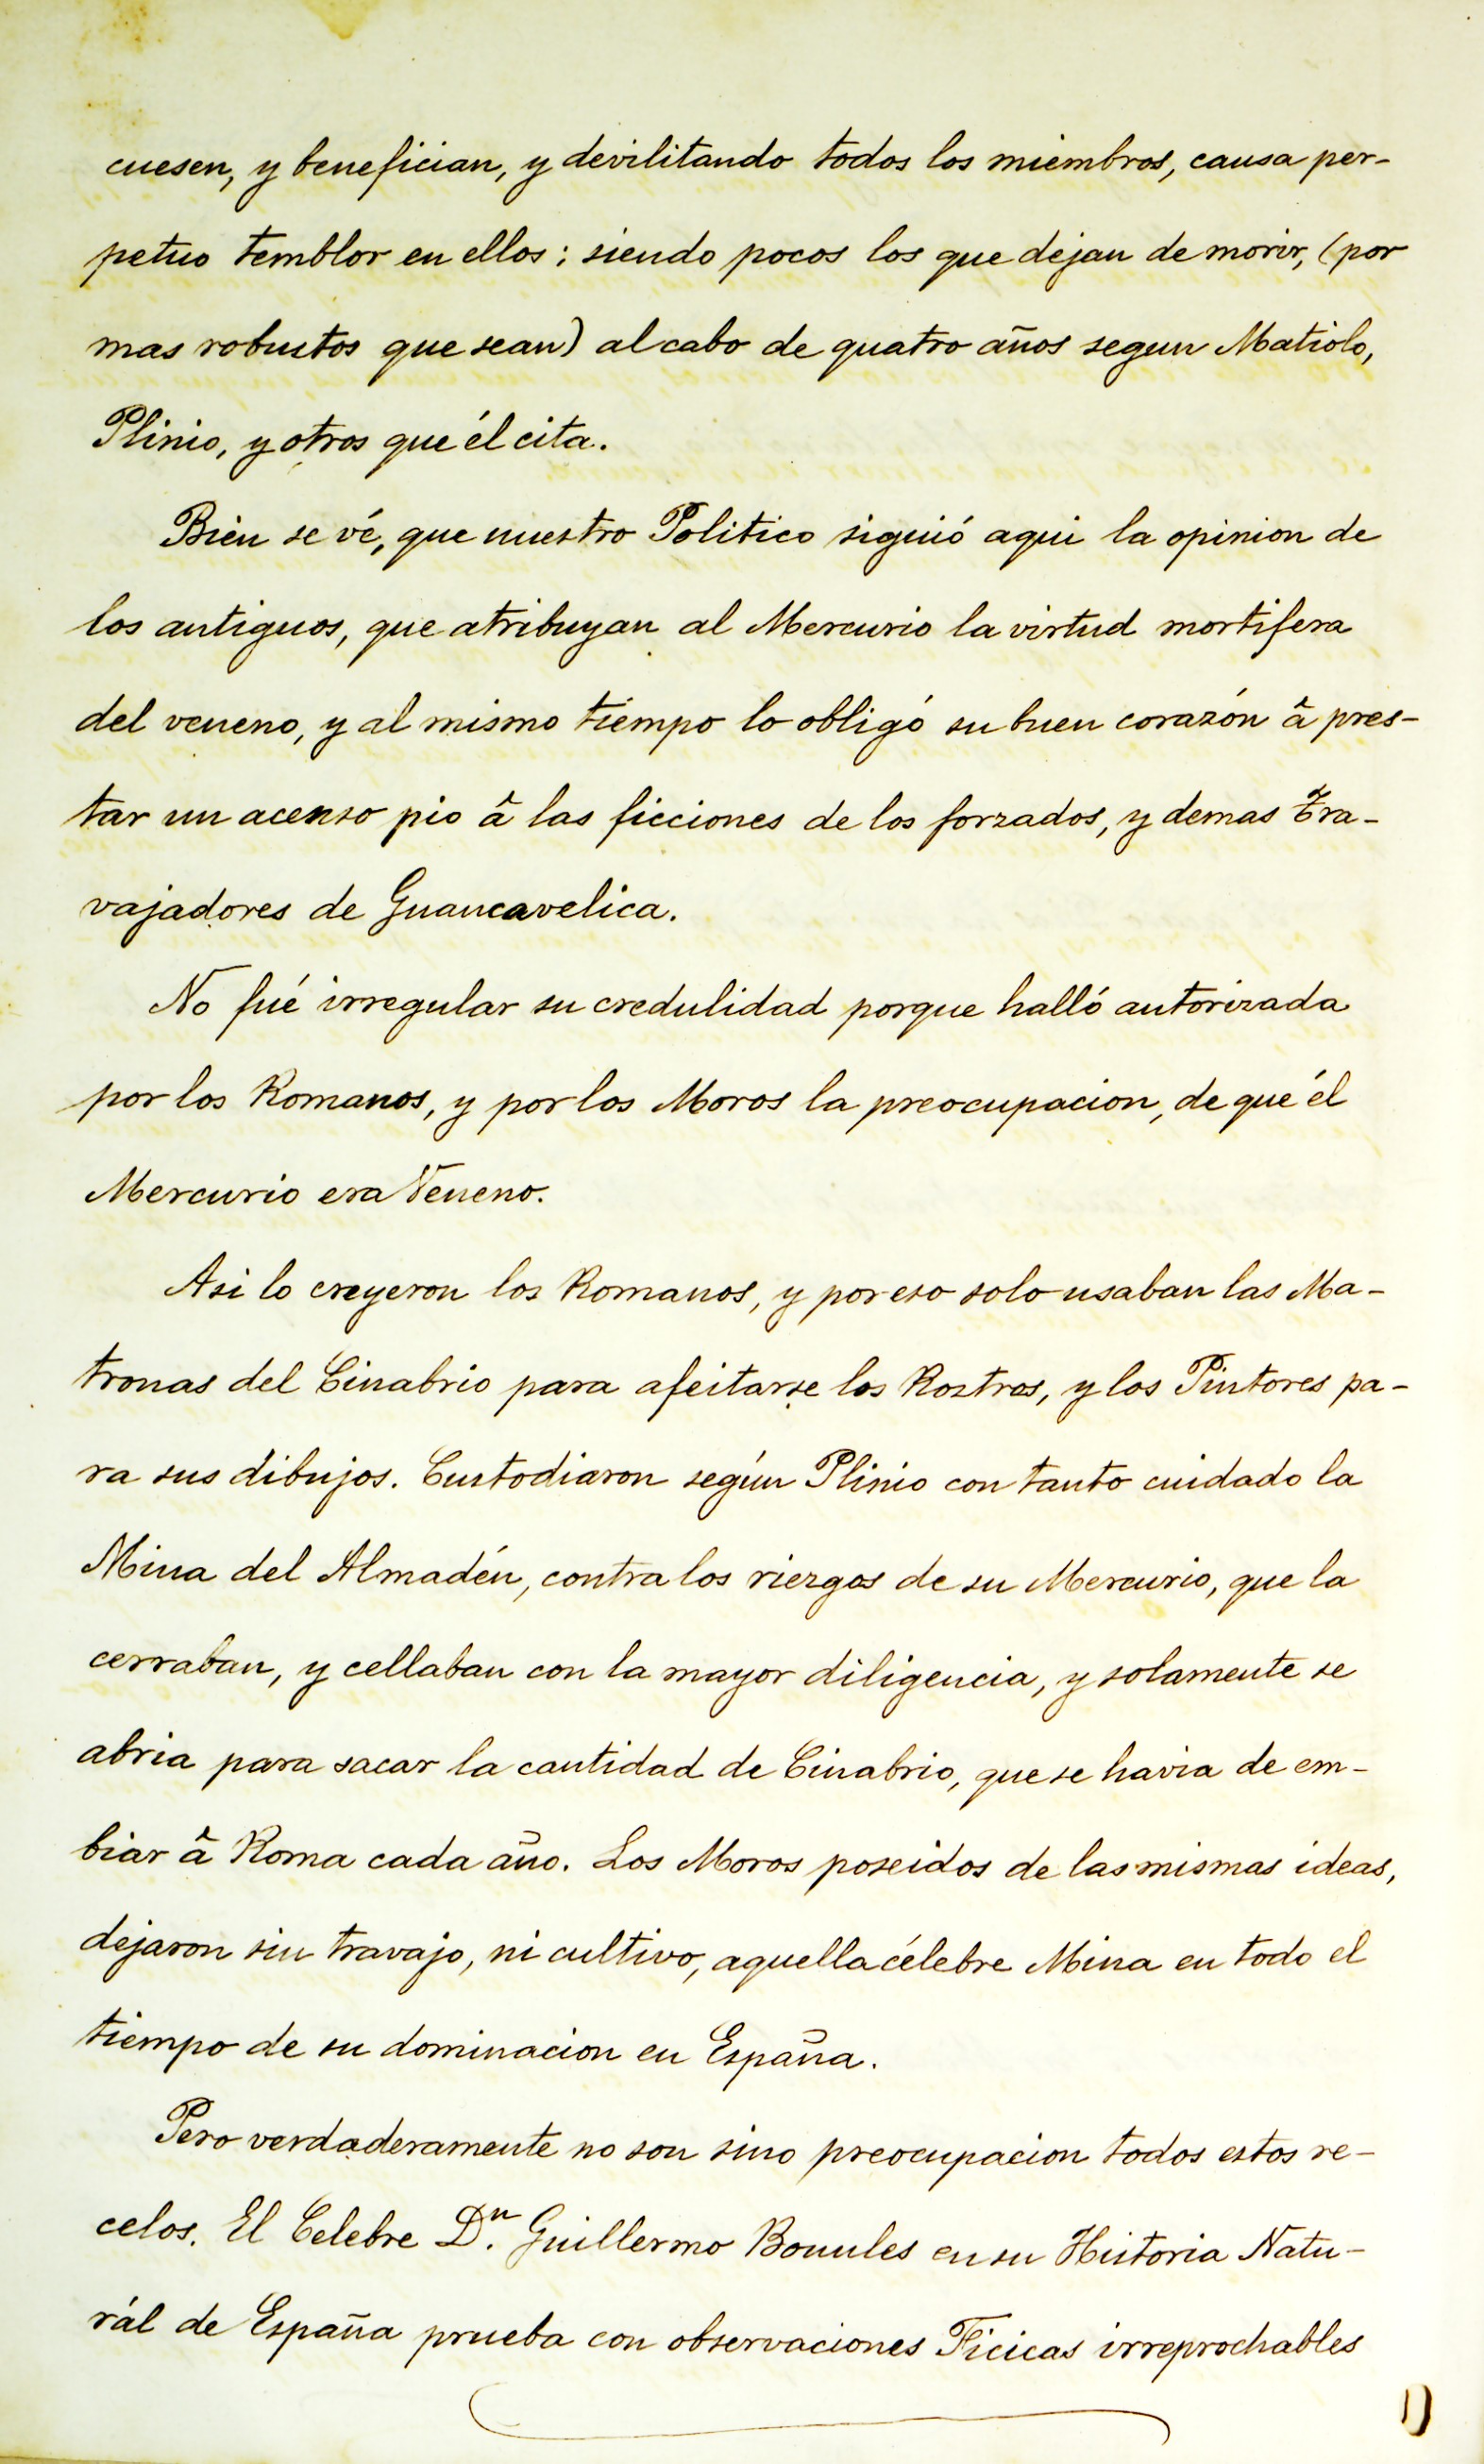 cuesen, y benefician, y devilitando todos los miembros, causa per-
petuo temblor en ellos; siendo pocos los que dejan de morir, (por
mas robustos que sean) al cabo de quatro años segun Matiolo,
Plinio, y otros que él cita.
Bien se vé, que nuestro Politico siguió aqui la opinion de
los antiguos, que atribuyan al Mercurio la virtud mortifera
del veneno, y al mismo tiempo lo obligó su buen corazón â pres-
tar un acenso pio â las ficciones de los forzados, y demas Tra-
vajadores de Guancavelica.
No fué irregular su credulidad porque halló autorizada
por los Romanos, y por los Moros la preocupacion, de que él
Mercurio era Veneno.
Asi lo creyeron los Romanos, y por eso solo usaban las Ma-
tronas del Cinabrio para afeitarse los Roztros, y los Pintores pa-
ra sus dibujos. Custodiaron según Plinio con tanto cuidado la
Mina del Almadén, contra los riezgos de su Mercurio, que la
cerraban, y cellaban con la mayor diligencia, y solamente se
abria para sacar la cantidad de Cinabrio, que se havia de em-
biar â Roma cada año. Los Moros poseidos de las mismas ideas,
dejaron sin travajo, ni cultivo, aquella célebre Mina en todo el
tiempo de su dominacion en España.
Pero verdaderamente no son sino preocupacion todos estos re-
celos. El Celebre Dn. Guillermo Bouules en su Historia Natu-
rál de España prueba con observaciones Ficicas irreprochables